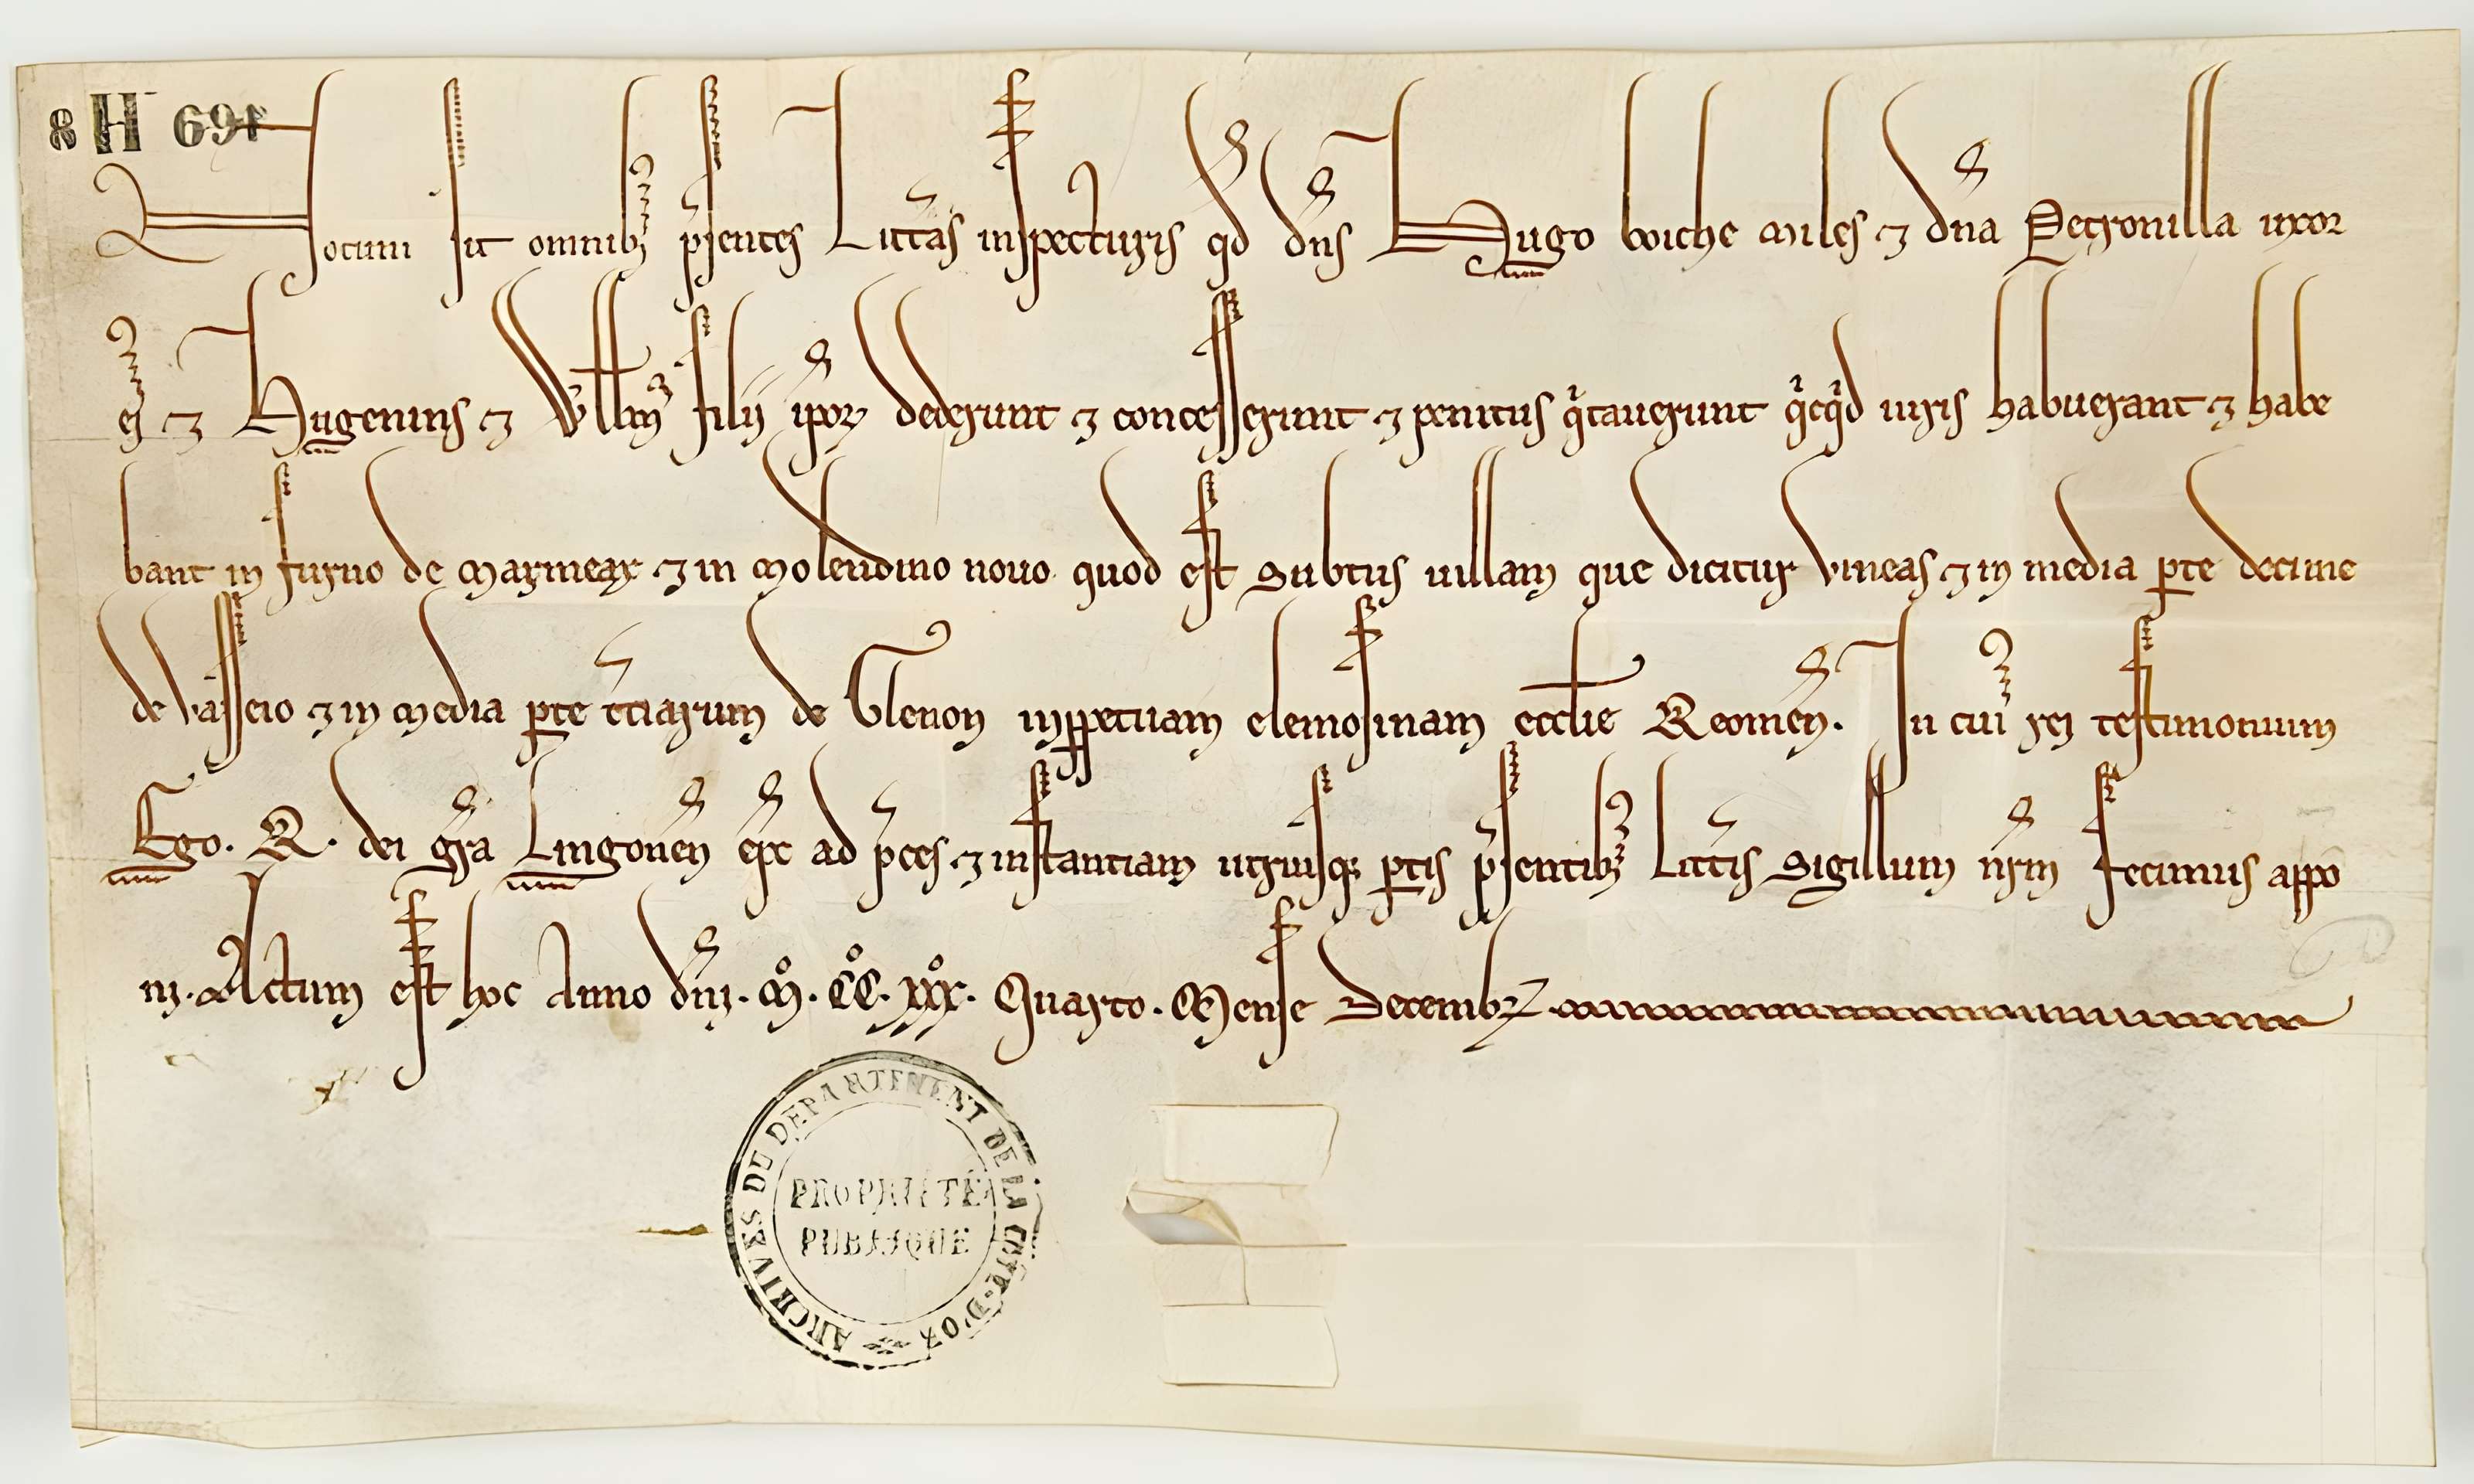 8 H 691
Notum sit omnibꝫ p̄sentes Litt̄as inspecturis qd̄ dn̄s Hugo boiche miles ⁊ dn̄a Petronilla uxor
ej ⁊ Hugenins ⁊ Vll̄ms filij ip̄oꝝ dederunt ⁊ concesserunt ⁊ penitus qͥtauerunt qͥcqͥd iuris habuerant ⁊ habe
bant in furno de Marmeax ⁊ in Molendino nouo quod est Subtus uillam que dicitur Vineas ⁊ in media ꝑte decime
de Vasseio ⁊ in Media ꝑte t̄ciarum de Glenon in ꝑpetuam elemosinam eccl̄ie Reomen̄. In cuiꝰ rei testimonium
Ego. R. dei gr̄a Lingonen̄ ep̄c ad p̄ces ⁊ instantiam utriusqꝫ ꝑtis p̄sentibꝫ Litt̄is Sigillum nr̄m fecimus appo
ni. Actum est hoc Anno dn̄i. Mͦ. CCͦ. xxxͦ. Quarto. Mense Decembꝝ
ARCHIVES DU DEPARTEMENT DE LA COTE-D'OR
PROPRIÉTÉ
PUBLIQUE